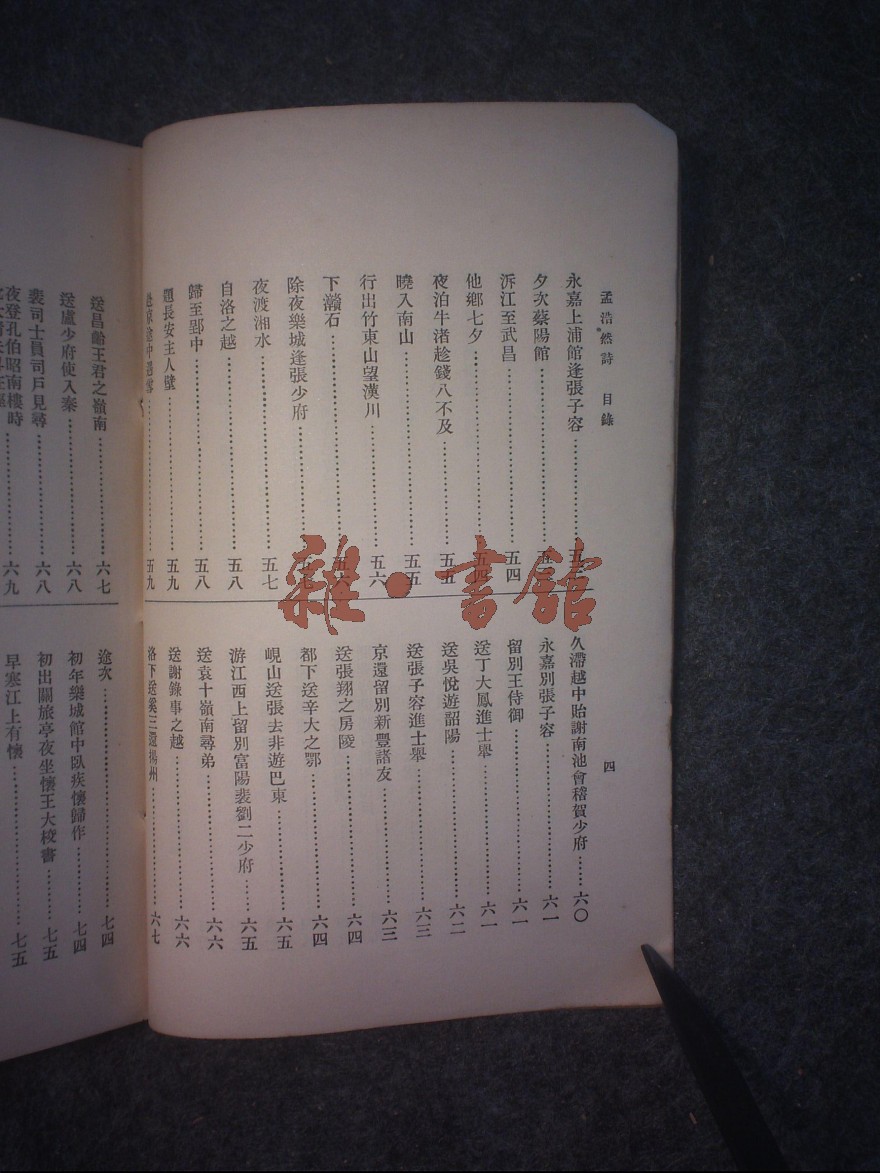 孟浩然詩　目錄
四
永嘉上浦館逢張子容
夕次蔡陽館
泝江至武昌……五四
他鄉七夕……五四
夜泊牛渚趁錢八不及……五五
曉入南山……五五
行出竹東山望漢川……五六
下灨石……五六
除夜樂城逢張少府
夜渡湘水……五七
自洛之越……五八
歸至郢中……五八
題長安主人壁……五九
……五九
久滯越中貽謝南池會稽賀少府……六〇
永嘉別張子容……六一
留別王侍御……六一
送丁大鳳進士舉……六一
送吳悅遊韶陽……六二
送張子容進士舉……六三
京還留別新豐諸友……六三
送張翔之房陵……六四
都下送辛大之鄂……六四
峴山送張去非遊巴東……六五
游江西上留別富陽裴劉二少府……六五
送袁十嶺南尋弟……六六
送謝錄事之越……六六
洛下送奚三還揚州……六七
送昌齡王君之嶺南……六七
送盧少府使入秦……六八
裴司士員司戶見尋……六八
夜登孔伯昭南樓時……六九
途次……七四
初年樂城館中臥疾懷歸作……七四
初出關旅亭夜坐懷王大校書……七五
早寒江上有懷……七五
雜·書館